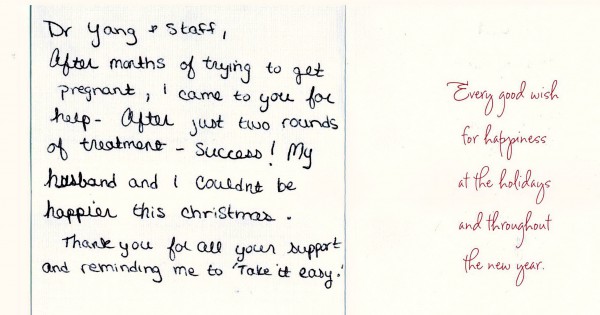 Dr Yang & Staff,
After months of trying to get
pregnant, I came to you for
help - After just two rounds
of treatment - Success! My
husband and I couldnt be
happier this christmas.
Thank you for all your support
and reminding me to 'Take it easy.'
Every good wish
for happiness
at the holidays
and throughout
the new year.